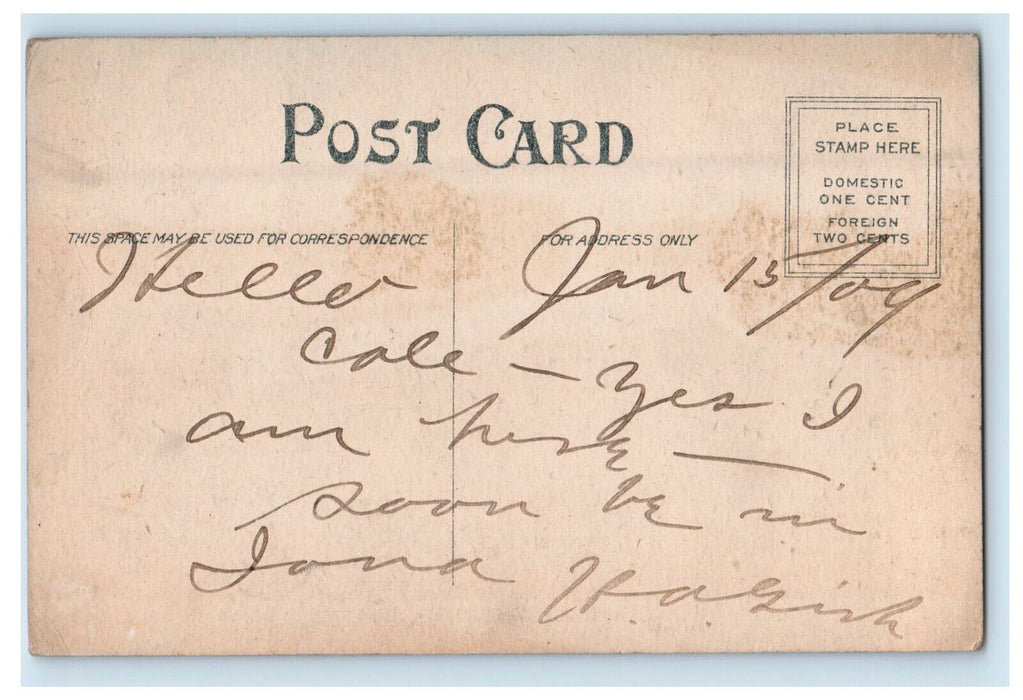 POST CARD
PLACE
STAMP HERE
DOMESTIC
ONE CENT
FOREIGN
TWO CENTS
THIS SPACE MAY BE USED FOR CORRESPONDENCE
FOR ADDRESS ONLY
Hello Jan 15/09
Cole — Yes I
am here —
soon be in
Iona